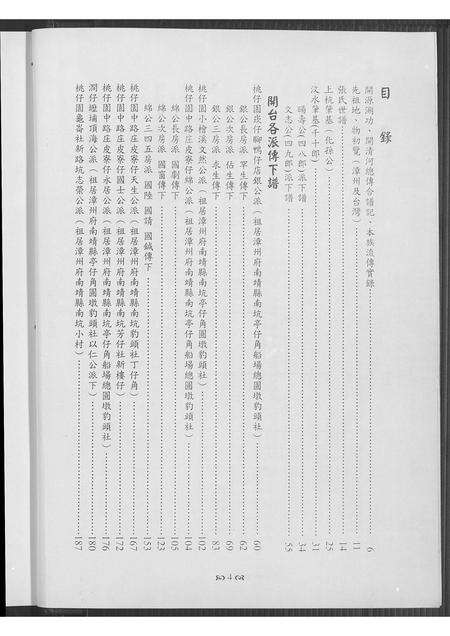 目錄
開源溯功、開清河總傳合譜記、本族流傳實錄 6
先祖地、物初覽(漳州及台灣) 11
張氏世譜 14
上杭肇基(化孫公) 25
汶水肇基(千十郎) 31
碭壽公(四八郎)派下譜 34
文志公(四九郎)派下譜 55
開台各派傳下譜
桃仔園崁仔腳鴨仔店銀公派(祖居漳州府南靖縣南坑亭仔角船場總圓墩豹頭社) 60
銀公長房派 寧生傳下 62
銀公次房派 佑生傳下 69
銀公三房派 永生傳下 83
桃仔園小檜溪文然公派(祖居漳州府南靖縣南坑亭仔角圓墩豹頭社) 102
桃仔園中路庄皮寮仔綿公派(祖居漳州府南靖縣南坑亭仔角船場總圓墩豹頭社) 104
綿公長房派 國創傳下 105
綿公次房派 國富傳下 123
綿公三四五房派 國陸 國請 國鍼傳下 153
桃仔園中路庄皮寮仔天生公派(祖居漳州府南靖縣南坑豹頭社丁仔角) 167
桃仔園中路庄皮寮仔國士公派(祖居漳州府南靖縣南坑芳仔社新樓仔) 172
桃仔園中路庄皮寮仔永居公派(祖居漳州府南靖縣南坑亭仔角船場總圓墩豹頭社) 176
澗仔壢埔頂海公派(祖居漳州府南靖縣亭仔角圓墩豹頭社以仁公派下) 180
桃仔園龜崙社新路坑志榮公派(祖居漳州府南靖縣南坑小村) 187
4